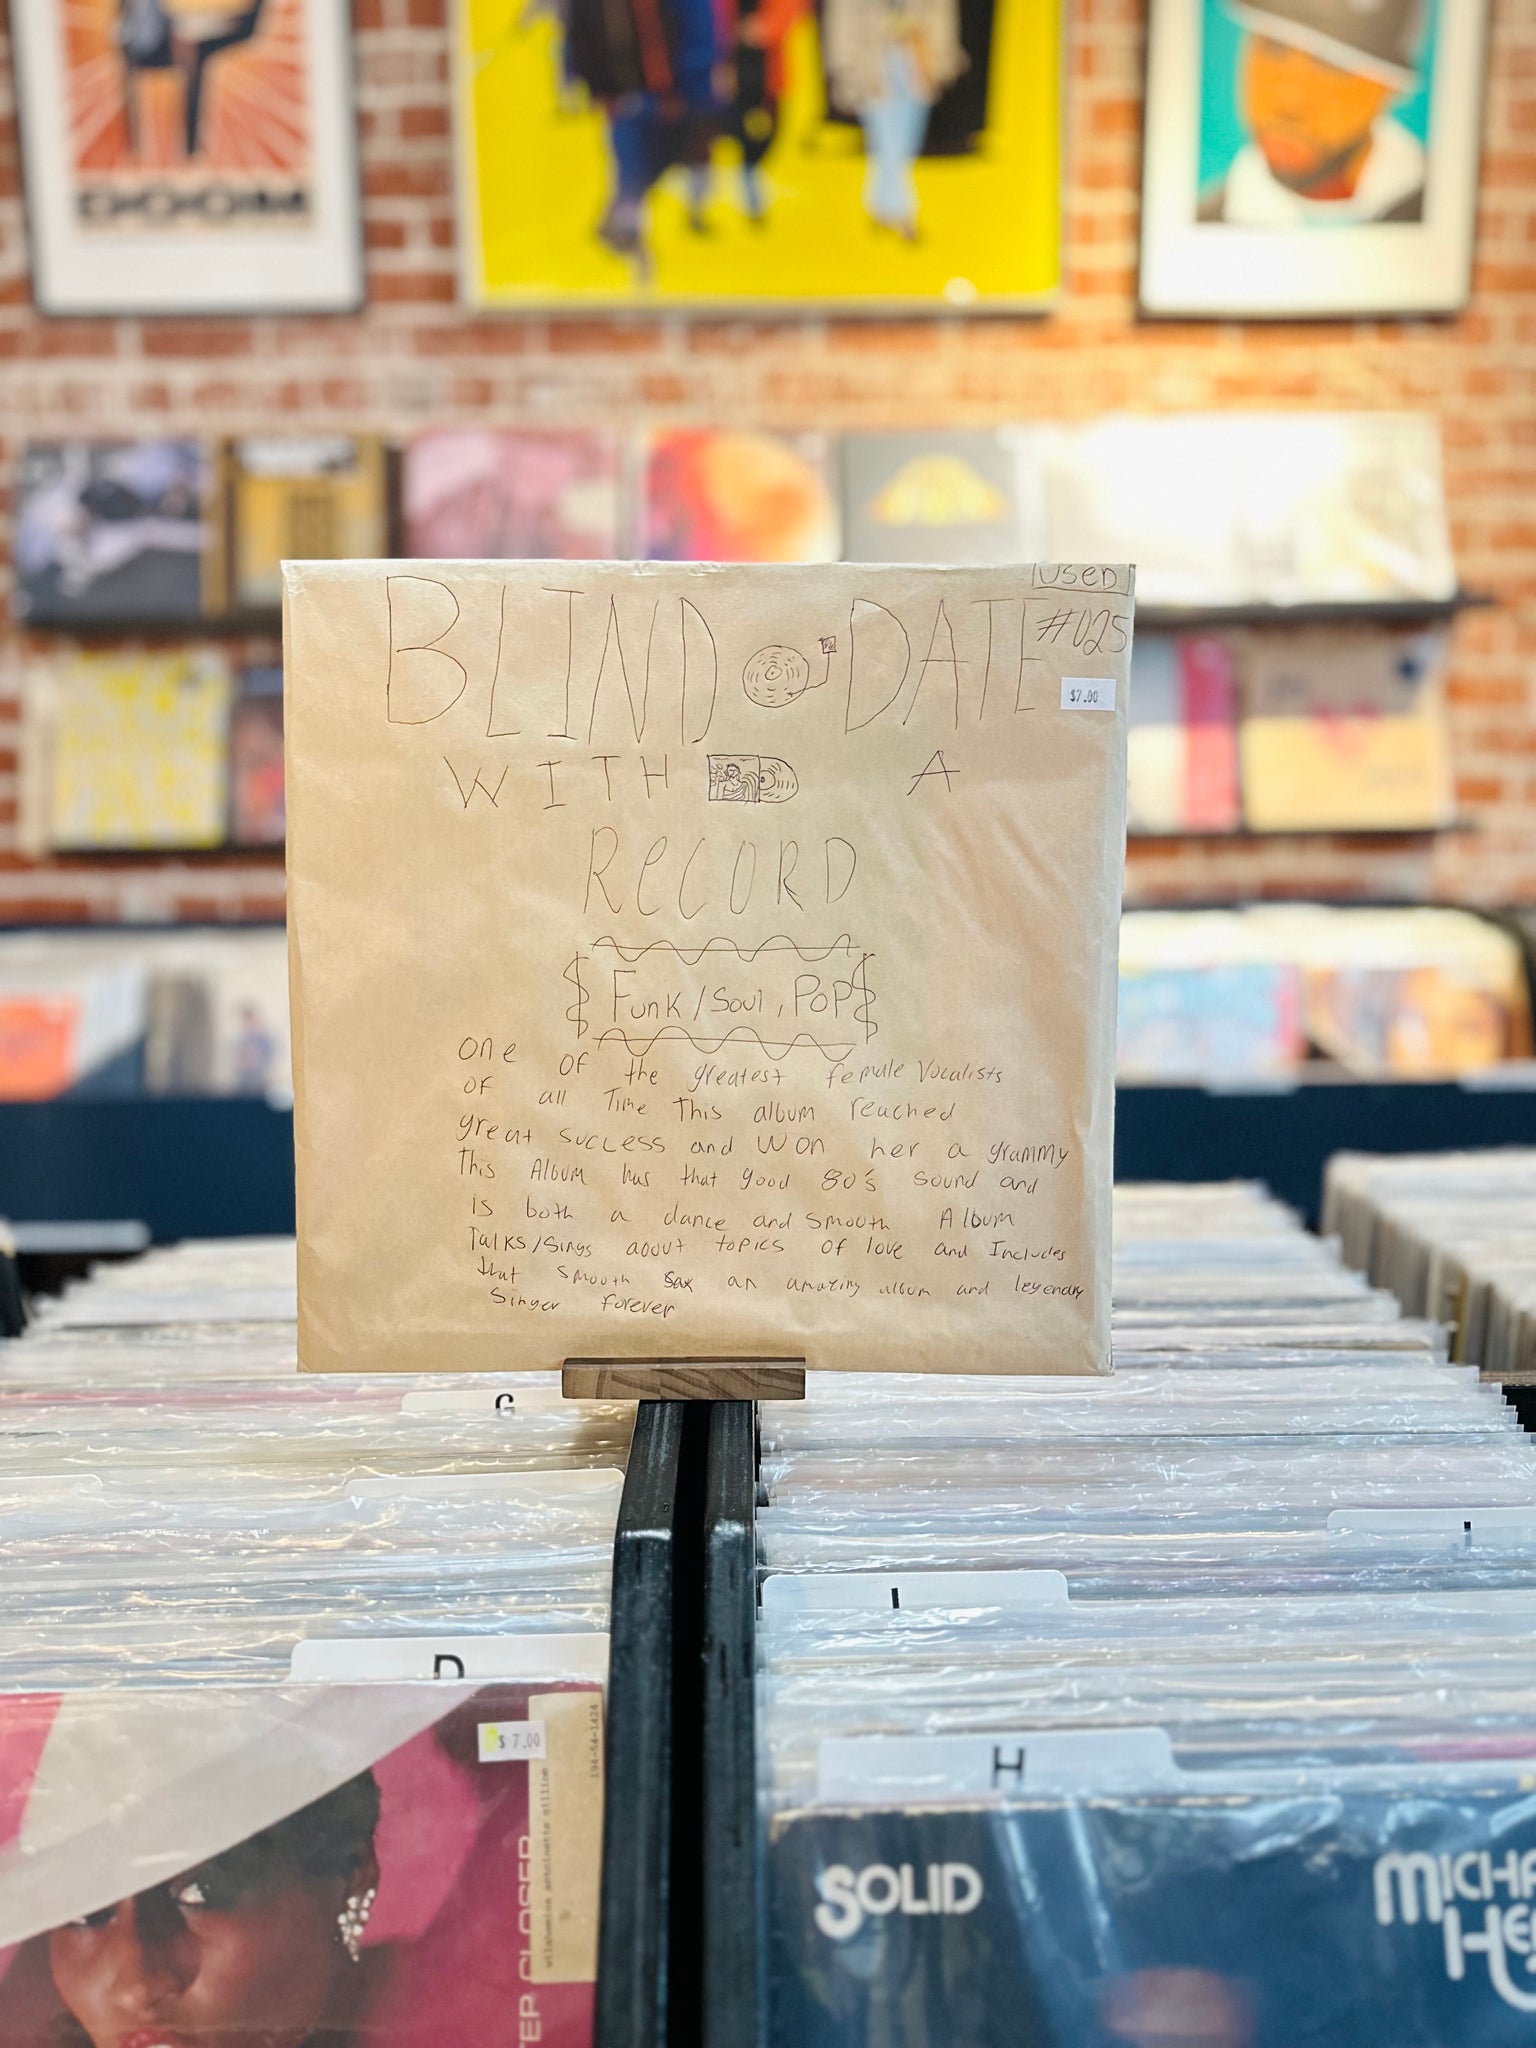 DOOM
USED
#025
$7.00
BLIND DATE
WITH A
RECORD
Funk/Soul, POP
one of the greatest female Vocalists
of all Time This album reached
great success and won her a grammy
This Album has that good 80's sound and
is both a dance and smooth Album
Talks/sings about topics of love and Includes
that smooth sax an amazing album and legendary
Singer forever
G
D
I
H
$7.00
194-54-1424
SOLID